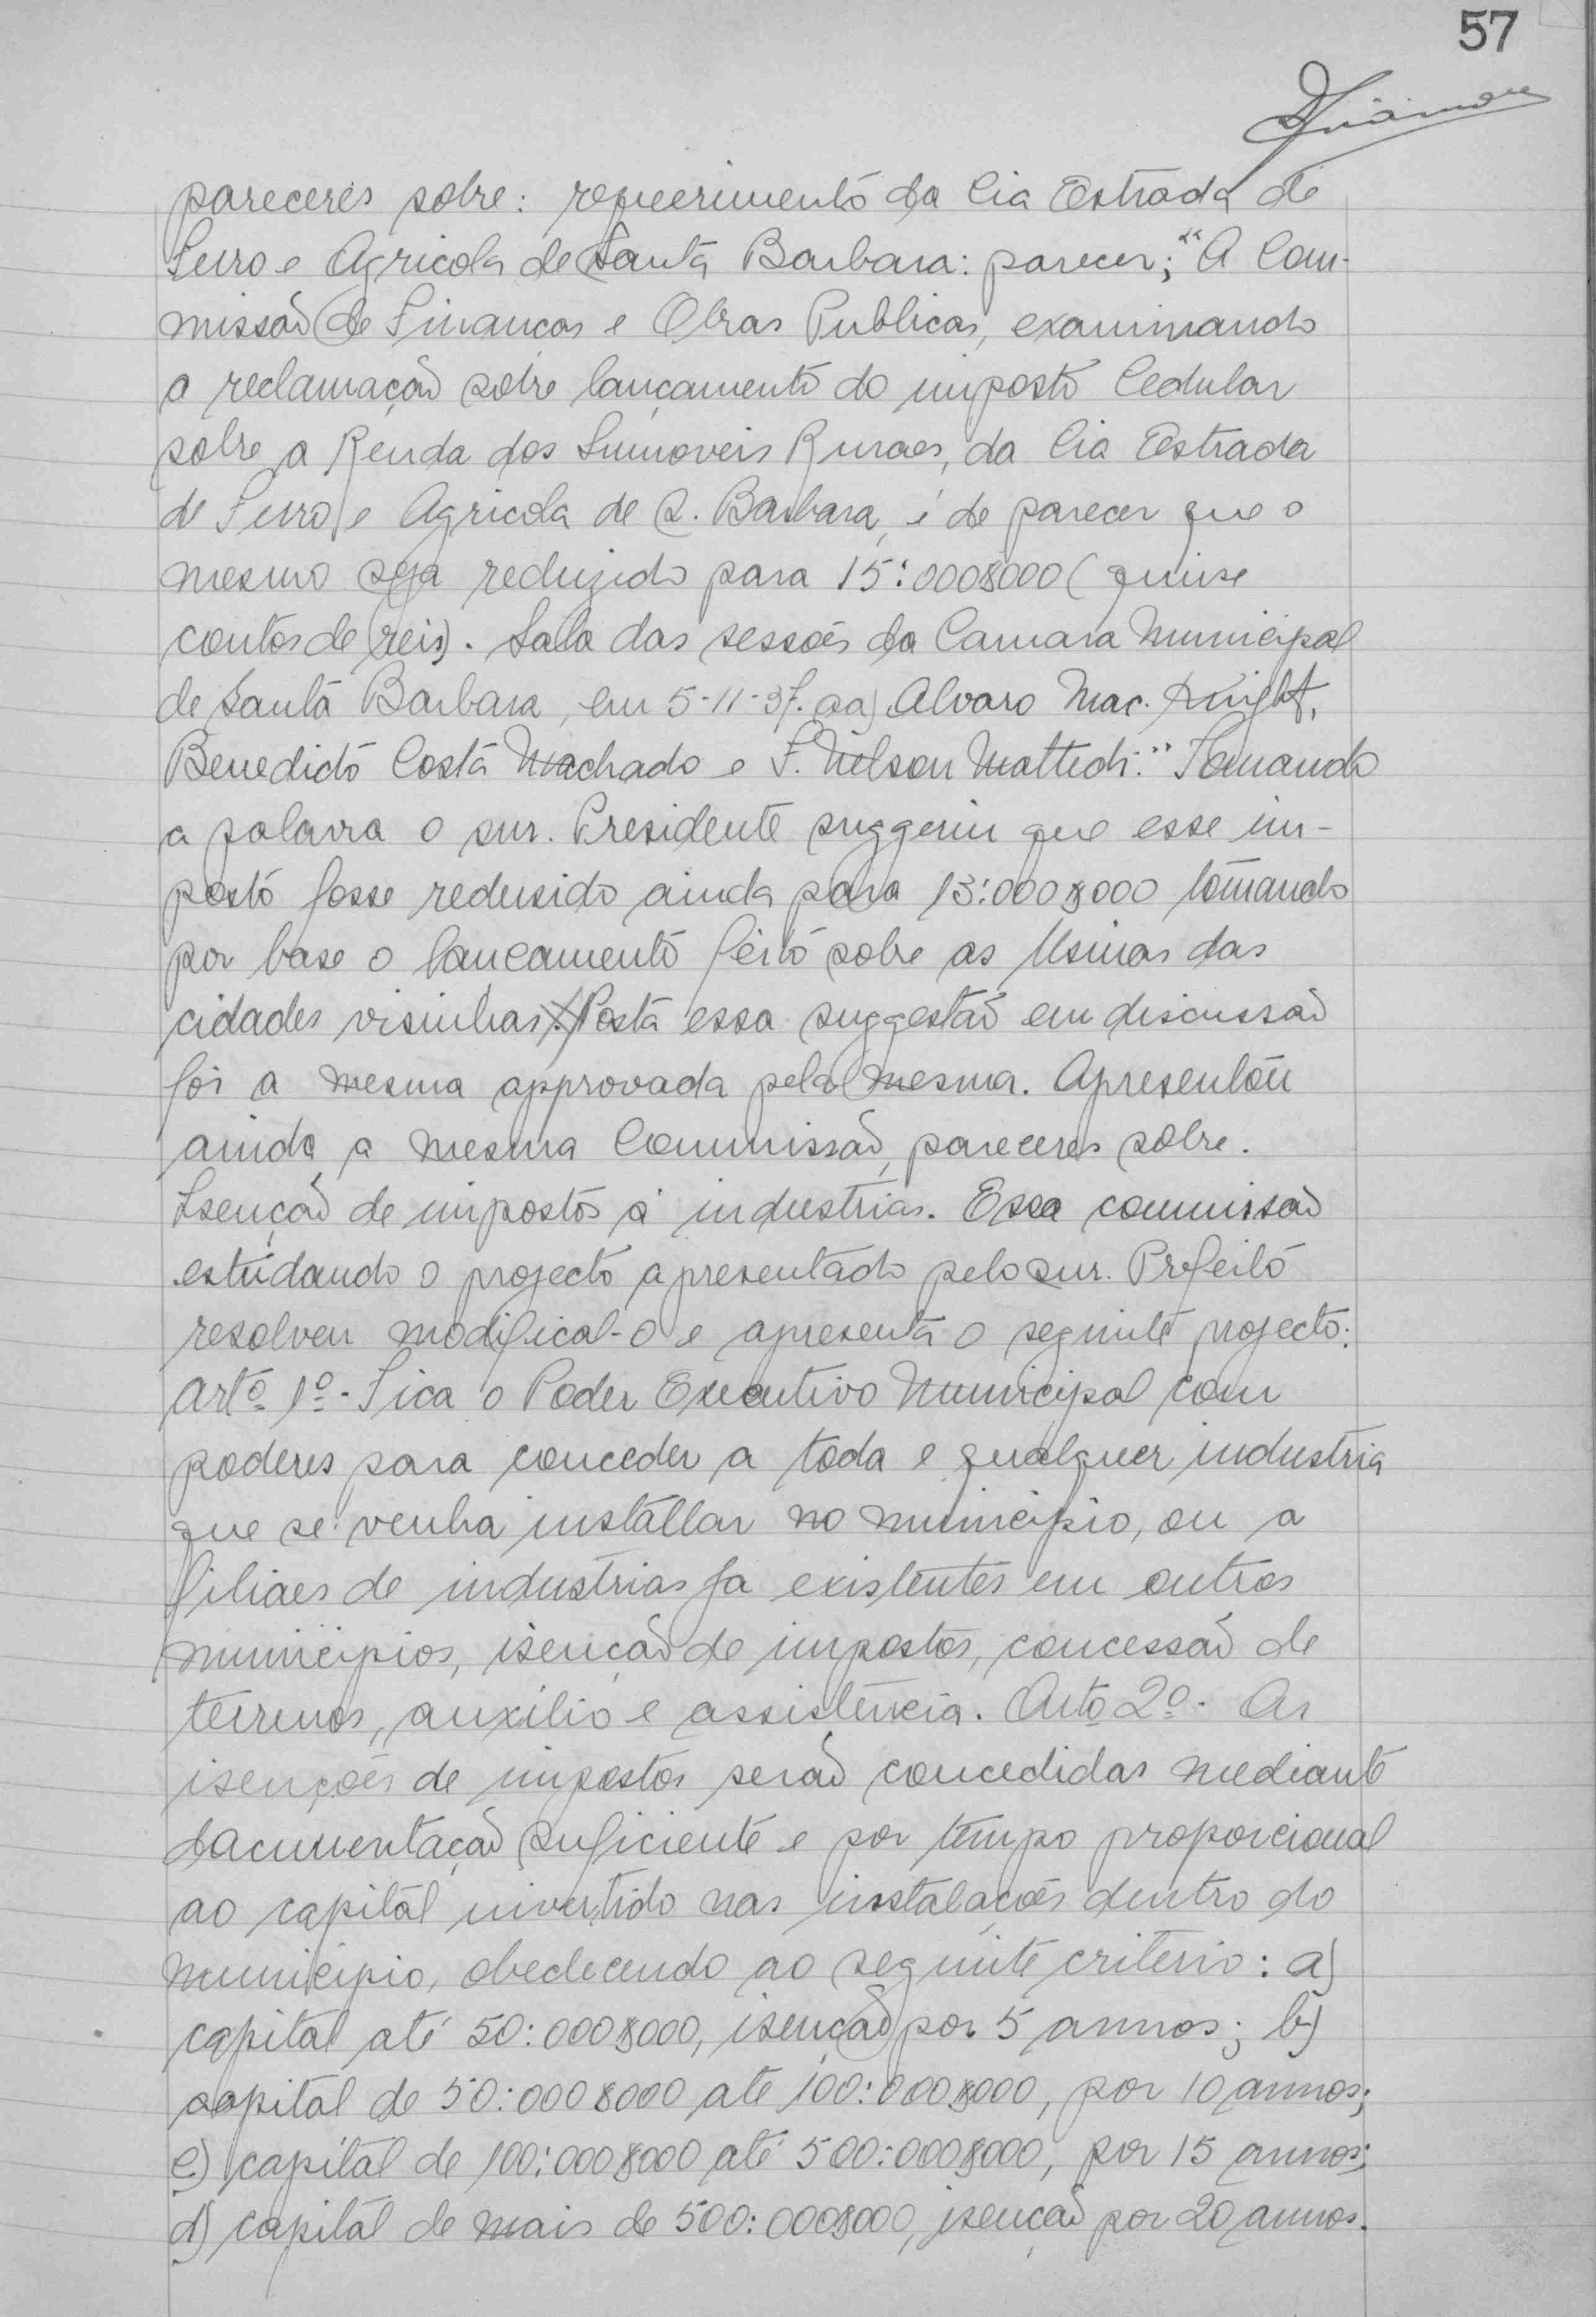 57
pareceres sobre: requerimento da Cia Estrada de
Ferro e Agricola de Santa Barbara: parecer; "A Com-
missão de Finanças e Obras Publicas, examinando
a reclamação sobre lançamento do imposto Cedular
sobre a Renda dos Immoveis Ruraes, da Cia Estrada
de Ferro e Agricola de S. Barbara, é de parecer que o
mesmo seja reduzido para 15:000$000 (quinse
contos de reis). Sala das sessões da Camara Municipal
de Santa Barbara, em 5-11-37. aa) Alvaro Mac. Knight,
Benedicto Costa Machado e F. Nelson Mattedi." Tomando
a palavra o snr. Presidente suggeriu que esse im-
posto fosse redusido ainda para 13:000$000 tomando
por base o lançamento feito sobre as Usinas das
cidades visinhas. Posta essa suggestão em discussão
foi a mesma approvada pela mesma. Apresentou
ainda a mesma Commissão, pareceres sobre.
Isenção de impostos á industrias. Essa commissão
estudando o projecto apresentado pelo snr. Prefeito
resolveu modifical-o e apresenta o seguinte projecto:
Artº 1º- Fica o Poder Executivo Municipal com
poderes para conceder a toda e qualquer industria
que se venha installar no municipio, ou a
filiaes de industrias ja existentes em outros
municipios, isenção de impostos, concessão de
terrenos, auxilio e assistencia. Artº 2º- As
isenções de impostos serão concedidas mediante
documentação suficiente e por tempo proporcional
ao capital invertido nas installações dentro do
municipio, obedecendo ao seguinte criterio: a)
capital até 50:000$000, isenção por 5 annos; b)
capital de 50:000$000 até 100:000$000, por 10 annos;
c) capital de 100:000$000 até 500:000$000, por 15 annos;
d) capital de mais de 500:000$000, isenção por 20 annos.